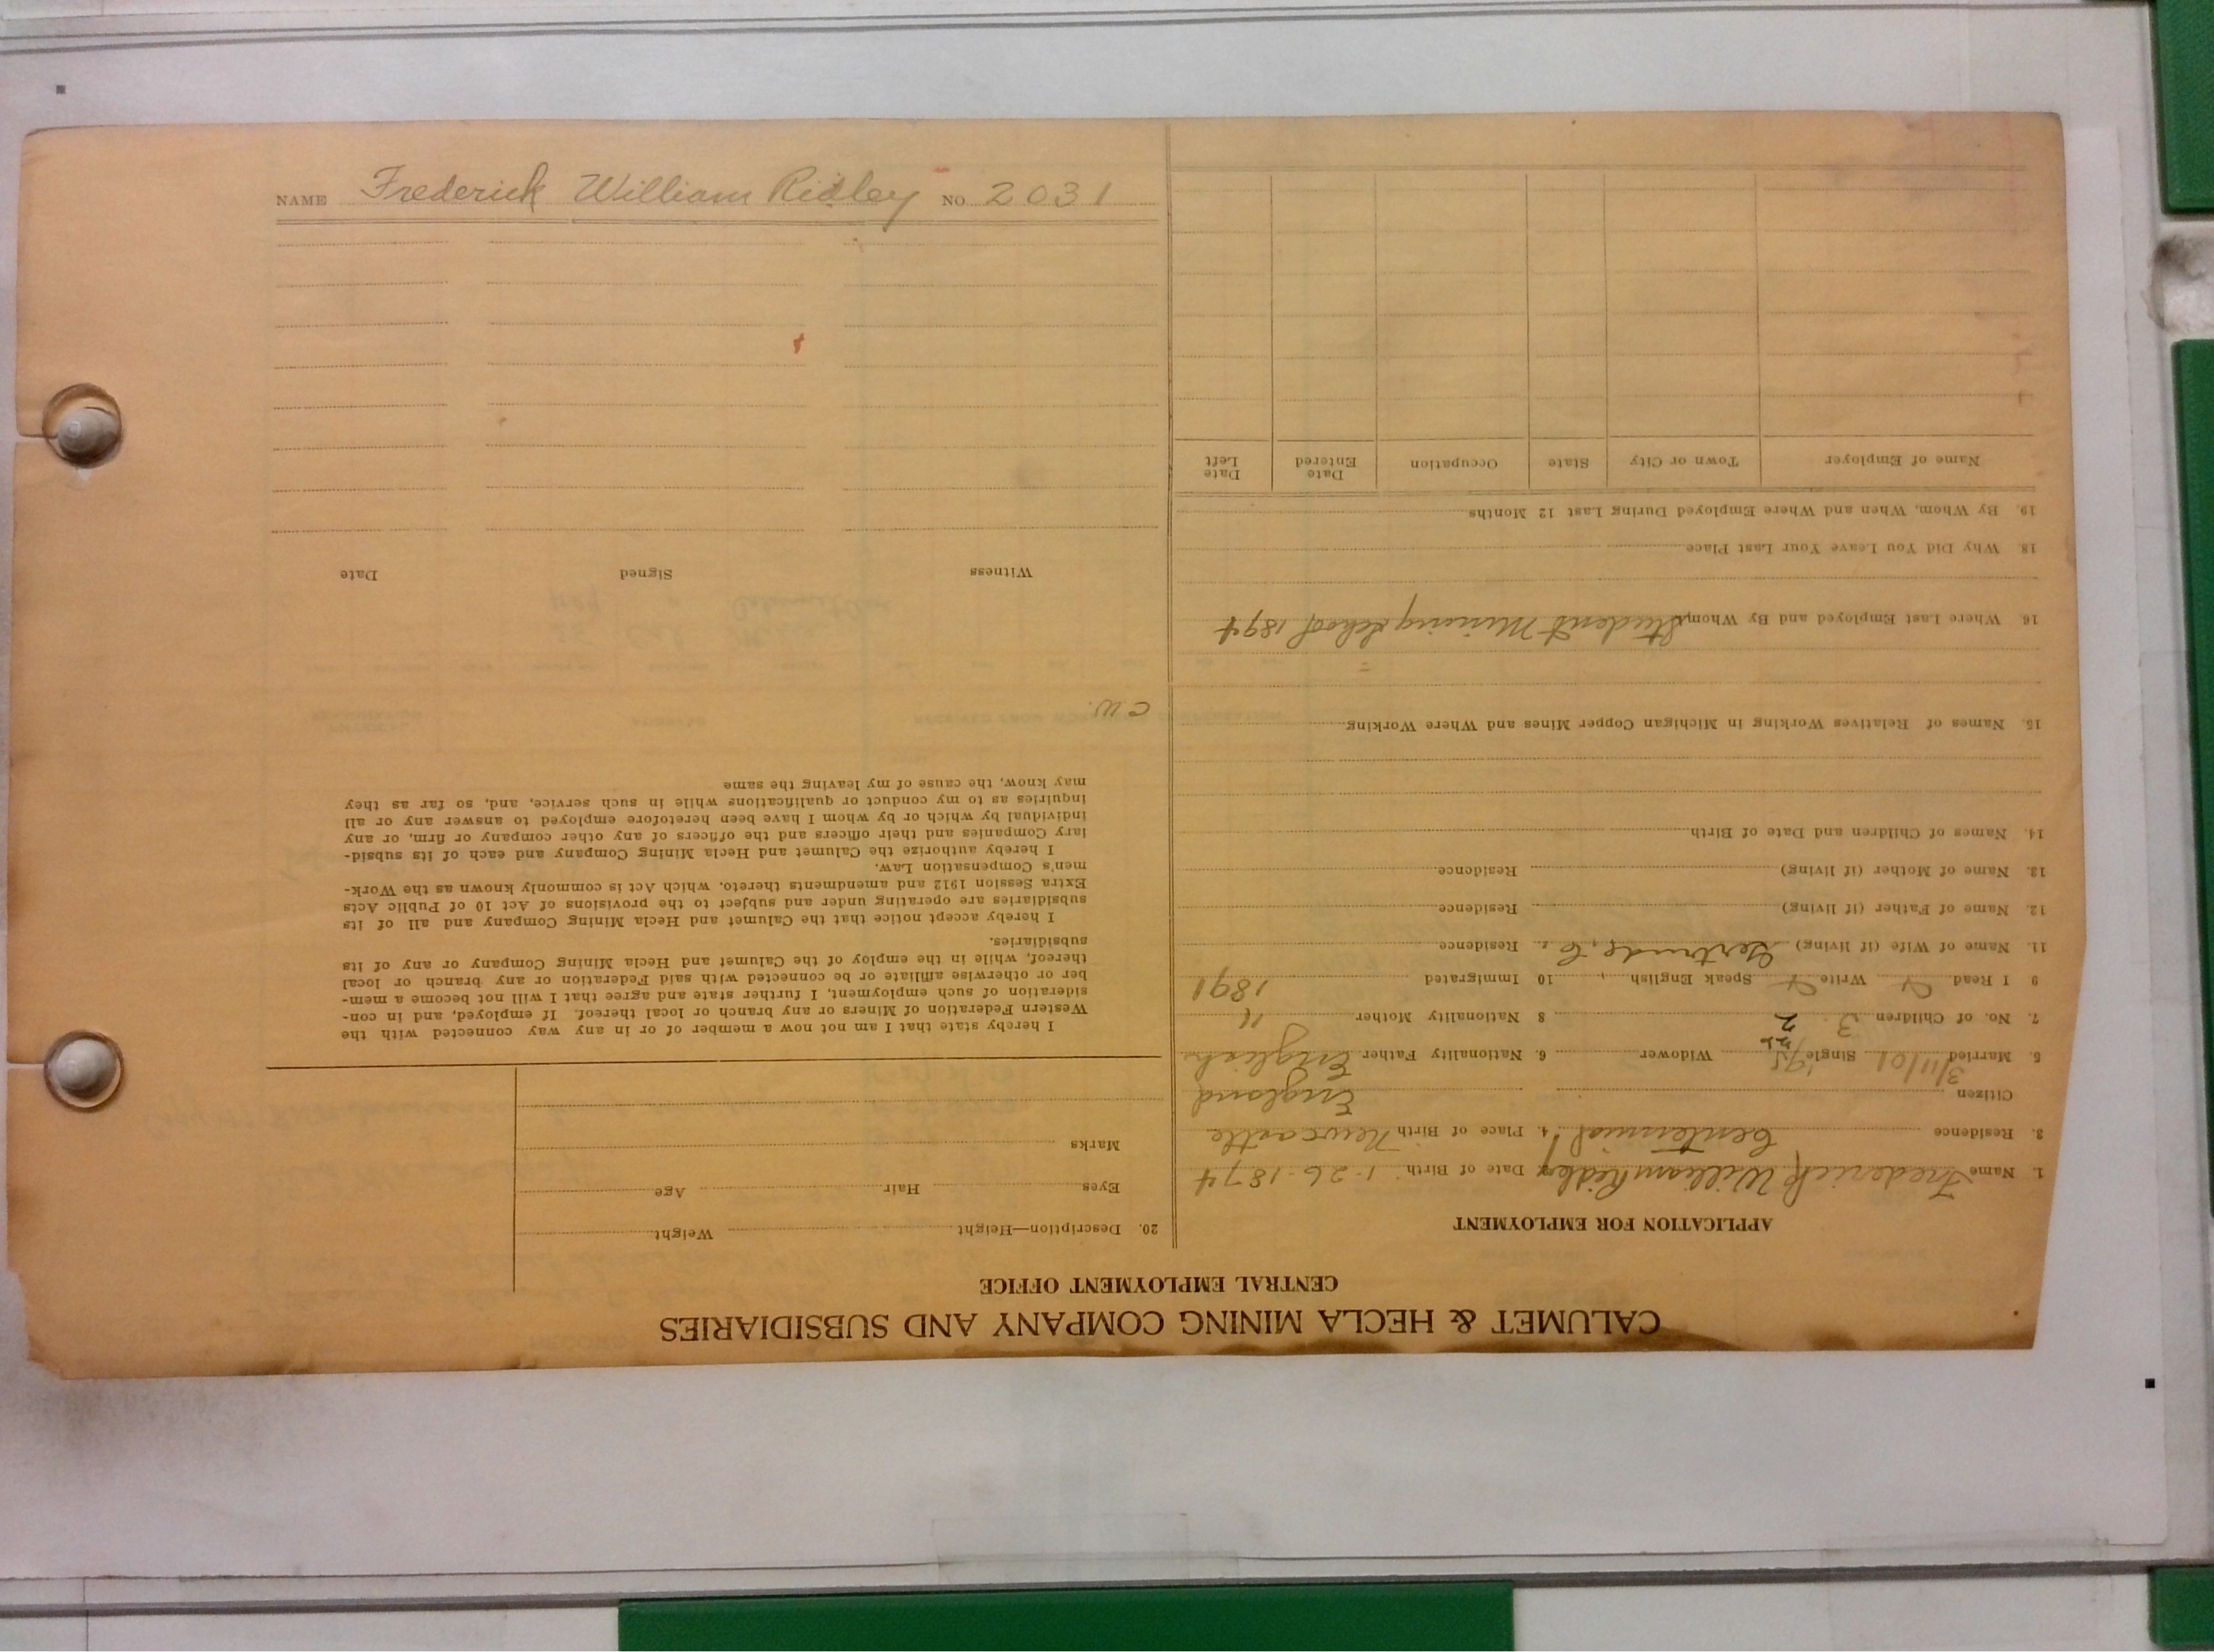 CALUMET & HECLA MINING COMPANY AND SUBSIDIARIES
CENTRAL EMPLOYMENT OFFICE
APPLICATION FOR EMPLOYMENT
1. Name Frederick William Ridley 2. Date of Birth 1-26-1874
3. Residence Centennial 4. Place of Birth Newcastle
Citizen England
5. Married 3/11/01 Single Widower 6. Nationality Father English
7. No. of Children 3 8 Nationality Mother "
9 I Read Write Speak English 10 Immigrated 1891
11. Name of Wife (if living) Gertrude, C. Residence
12. Name of Father (if living) Residence
13. Name of Mother (if living) Residence
14. Names of Children and Date of Birth
15. Names of Relatives Working in Michigan Copper Mines and Where Working
16. Where Last Employed and By Whom Student Mining School 1894
18. Why Did You Leave Your Last Place
19. By Whom, When and Where Employed During Last 12 Months
Name of Employer Town or City State Occupation Date Entered Date Left
20. Description—Height Weight
Eyes Hair Age
Marks
I hereby state that I am not now a member of or in any way connected with the
Western Federation of Miners or any branch or local thereof. If employed, and in con-
sideration of such employment, I further state and agree that I will not become a mem-
ber or otherwise affiliate or be connected with said Federation or any branch or local
thereof, while in the employ of the Calumet and Hecla Mining Company or any of its
subsidiaries.
I hereby accept notice that the Calumet and Hecla Mining Company and all of its
subsidiaries are operating under and subject to the provisions of Act 10 of Public Acts
Extra Session 1912 and amendments thereto, which Act is commonly known as the Work-
men's Compensation Law.
I hereby authorize the Calumet and Hecla Mining Company and each of its subsid-
iary Companies and their officers and the officers of any other company or firm, or any
individual by which or by whom I have been heretofore employed to answer any or all
inquiries as to my conduct or qualifications while in such service, and, so far as they
may know, the cause of my leaving the same
C.W.
Witness Signed Date
NAME Frederick William Ridley NO 2031